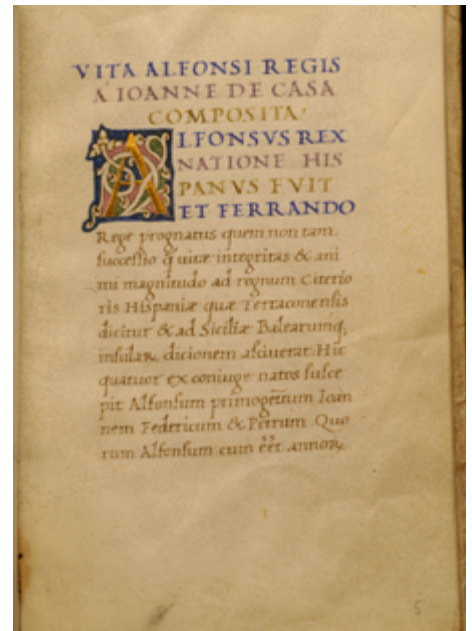 VITA ALFONSI REGIS
A IOANNE DE CASA
COMPOSITA
ALFONSVS REX
NATIONE HIS
PANVS FVIT
ET FERRANDO
Rege prognatus quem non tam
successio q̃ uitæ integritas & ani
mi magnitudo ad regnum Citerio
ris Hispaniæ quæ Terraconensis
dicitur & ad Siciliæ Balearumq;
insulaꝝ dicionem asciuerat: Hic
quatuor ex coniuge natos susce
pit Alfonsum primogenitum Ioan
nem Federicum & Petrum. Quo
rum Alfonsum cum eẽt annoꝝ
5